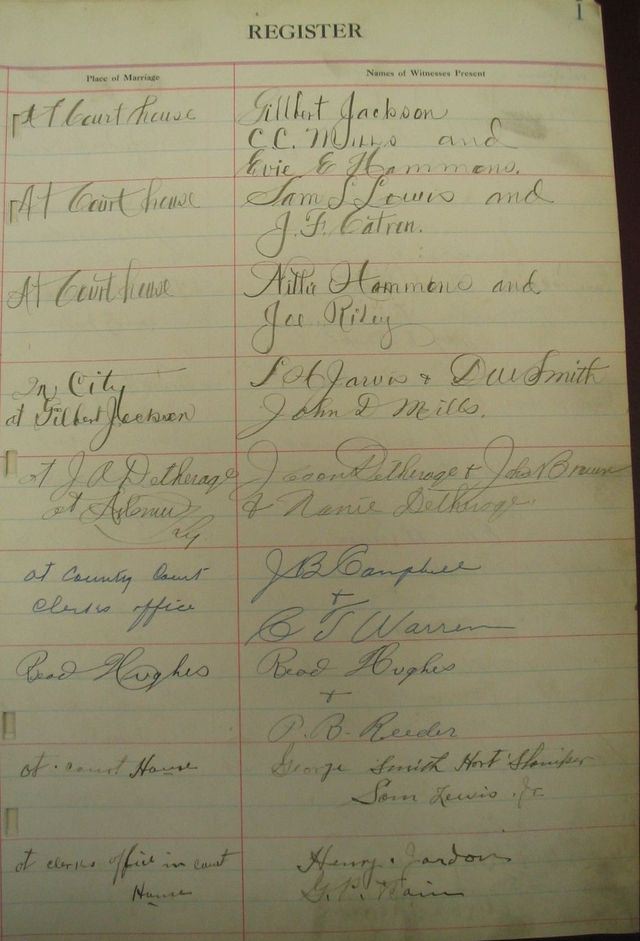 1
REGISTER
Place of Marriage
Names of Witnesses Present
At Court house
Gillbert Jackson
C.C. Mills and
Evie E Hammons.
At Court house
Sam S Lewis and
J. F. Catron.
At Court house
Nillie Hammons and
Joe Riley
In City
at Gilbert Jackson
S H Jarvis & D W Smith
John D Mills.
at J A Detherage
Jason Detherage & John Brown
at
Ky
& Nanie Detherage.
at County Court
Clerks office
J B Campbell
+
C T Warren
Read Hughes
Read Hughes
+
P. B. Reeder
at court House
George Smith Hort
Sam Lewis Jr
at clerks office in court
House
Henry Jordon
G. P.